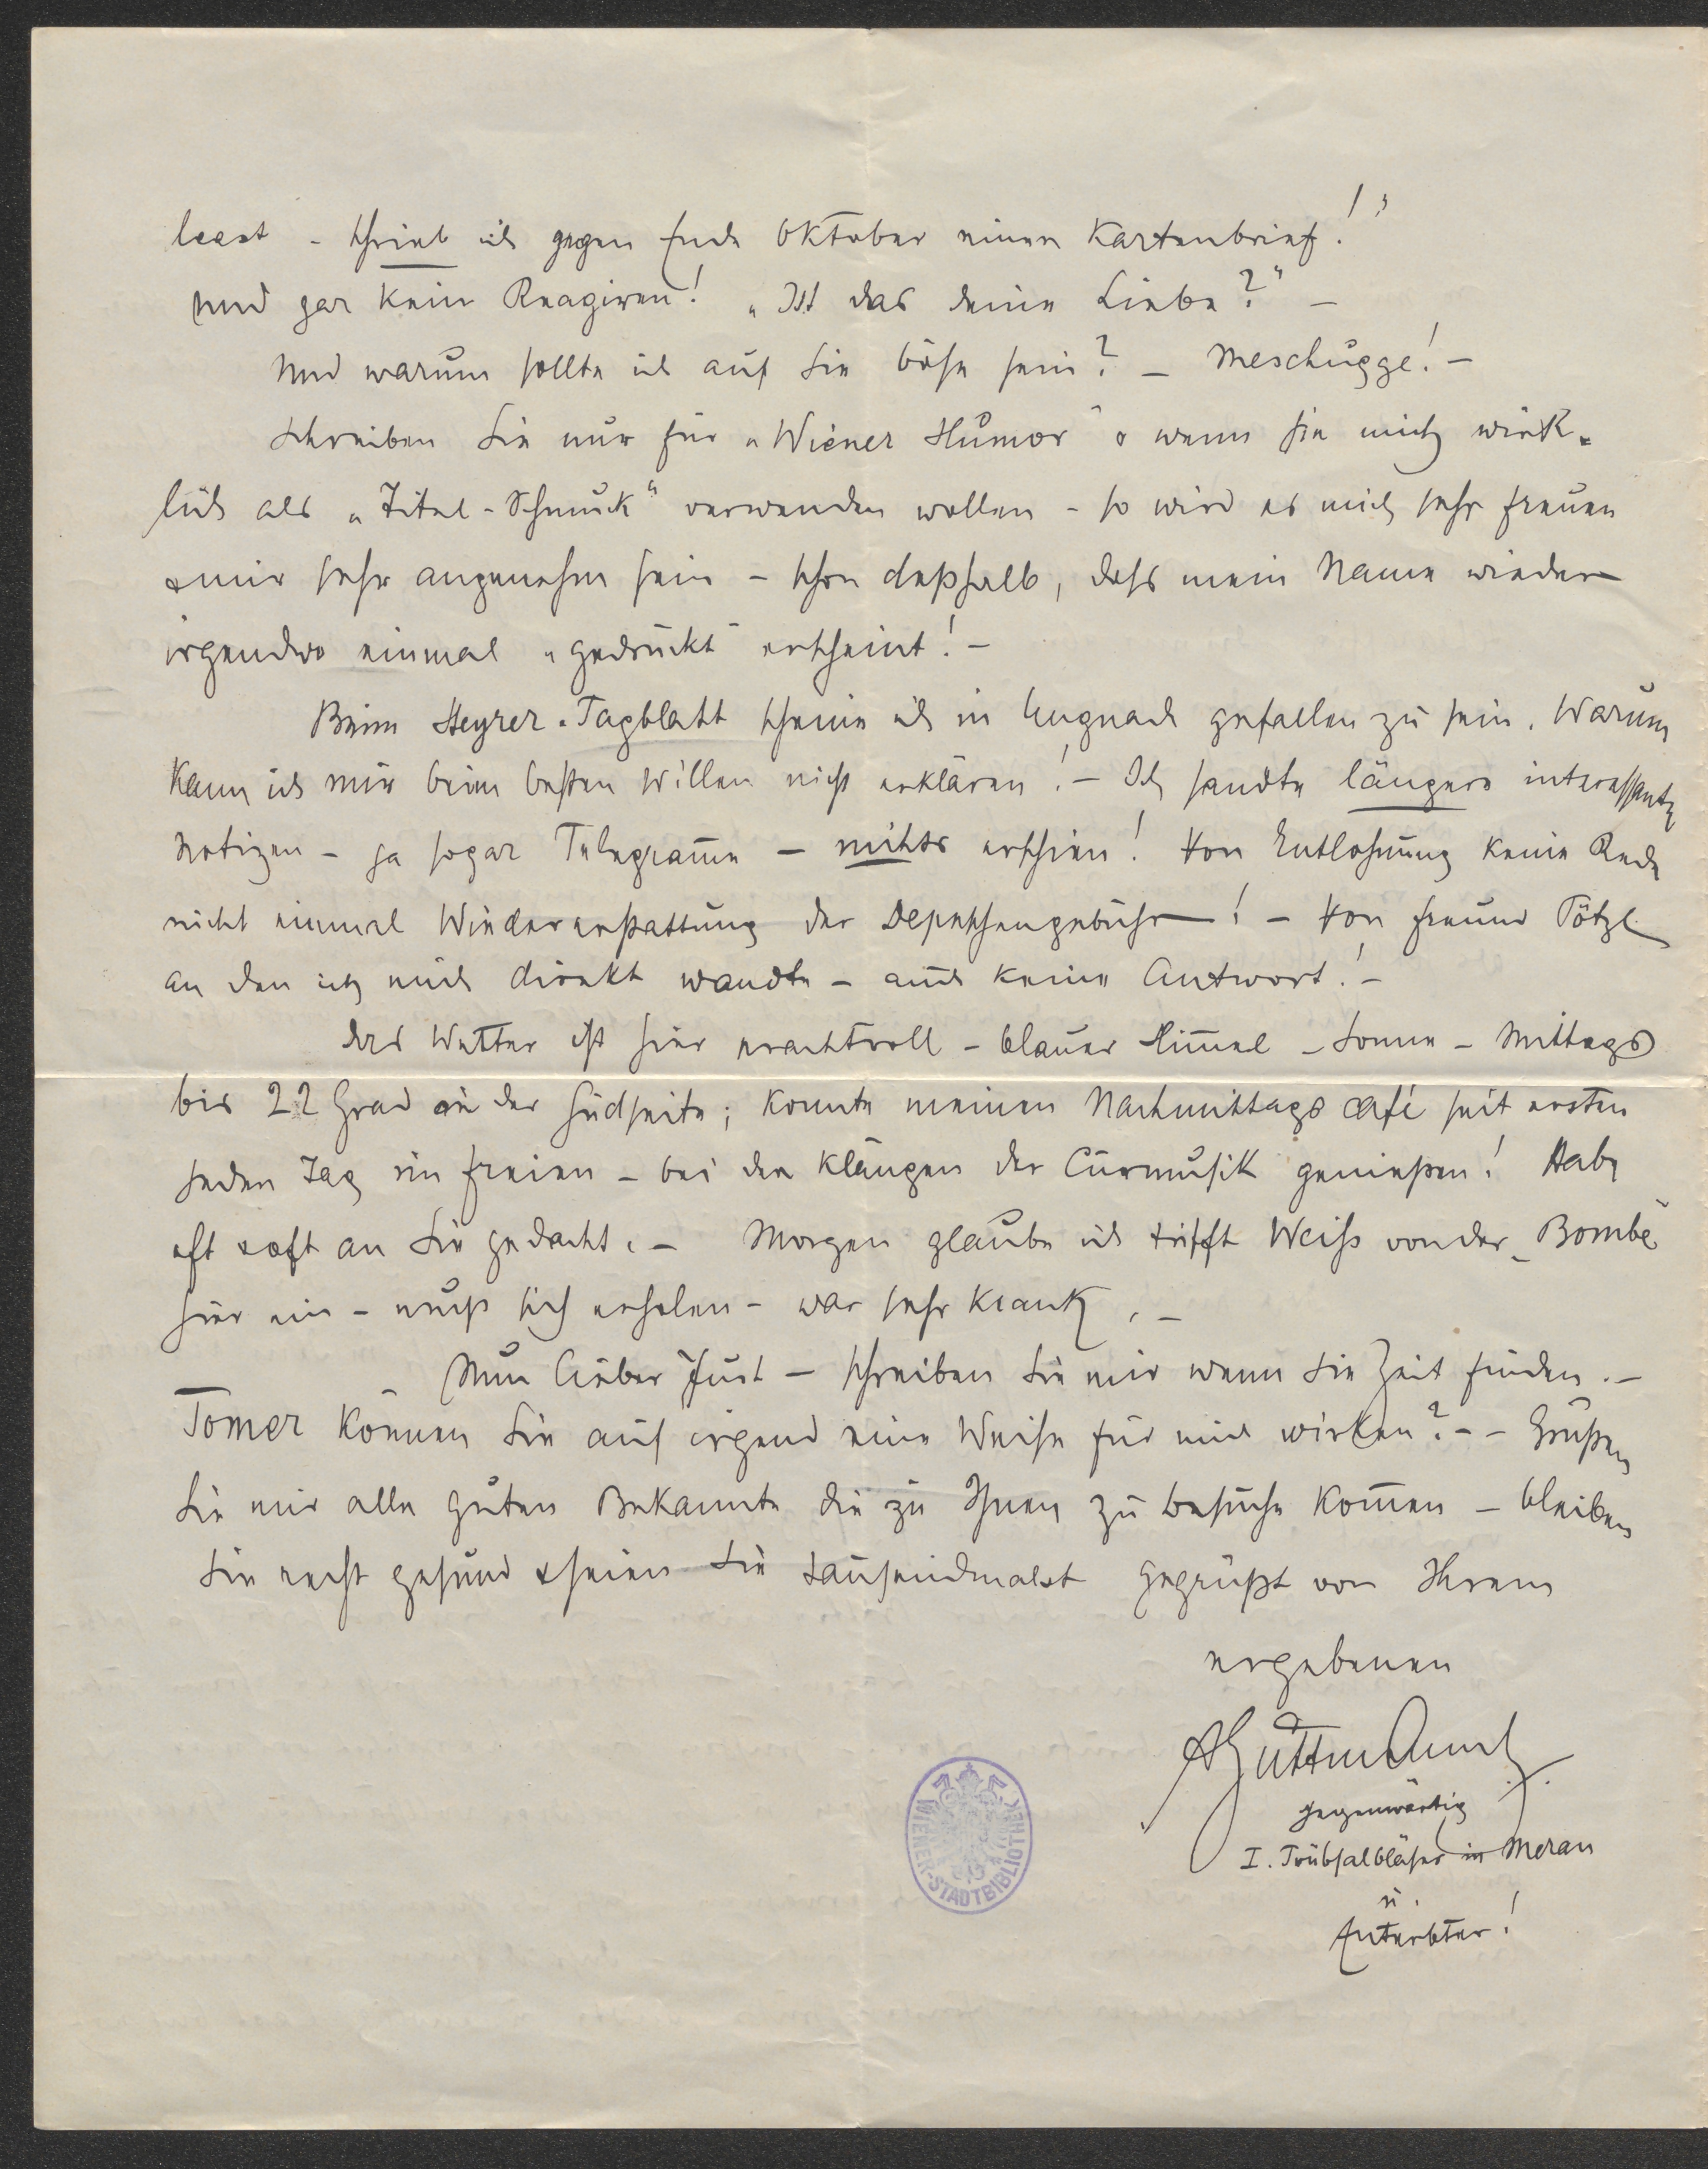 least - schrieb ich gegen Ende Oktober einen Kartenbrief!"
und gar kein Reagiren! „Ist das deine Liebe?" –
Und warum sollte ich auf Sie böse sein? – Meschugge! –
Schreiben Sie nur für „Wiener Humor" & wenn Sie mich wirk-
lich als „Titel-Schmuck" verwenden wollen – so wird es mich sehr freuen
& mir sehr angenehm sein – schon deßhalb, dass mein Name wieder
irgendwo einmal „gedruckt" erscheint! –
Beim Steyrer-Tagblatt scheine ich in Ungnade gefallen zu sein. Warum
kann ich mir beim besten Willen nicht erklären! – Ich sandte längere interessante
Notizen – ja sogar Telegram̄e – nichts erschien! Von Entlohnung keine Rede
nicht einmal Wiedererstattung der Depeschengebühr! – Von Freund Pötzl
an den ich mich direkt wandte – auch keine Antwort! –
Das Wetter ist hier prachtvoll – blauer Him̄el – Sonne – Mittags
bis 22 Grad an der Südseite; konnte meinen Nachmittags café seit ersten
jeden Tag im Freien – bei den Klängen der Curmusik genießen! Habe
oft & oft an Sie gedacht. – Morgen glaube ich trifft Weiss von der „Bombe"
hier ein – muß sich erholen – war sehr krank. –
Nun lieber Just – schreiben Sie mir wenn Sie Zeit finden. –
Können Sie auf irgend eine Weise für mich wirken? – – Grüßen
Sie mir alle guten Bekannte die zu Ihnen zu Besuche kom̄en – bleiben
Sie recht gesund & seien Sie tausendmalst gegrüßt von Ihrem
ergebenen
AGuttmann
gegenwärtig
I. Trübsalbläser in Meran
u.
Enterbter!
WIENER-STADTBIBLIOTHEK